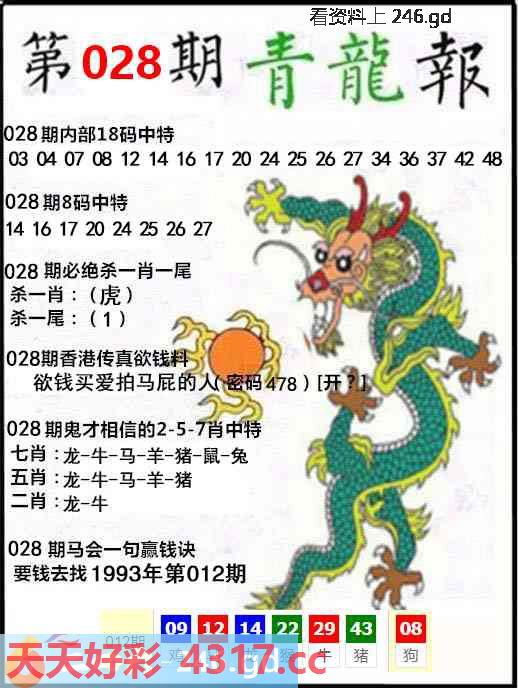 看资料上 246.gd
第028期青龍報
028期内部18码中特
03 04 07 08 12 14 16 17 20 24 25 26 27 34 36 37 42 48
028期8码中特
14 16 17 20 24 25 26 27
028 期必绝杀一肖一尾
杀一肖：（虎）
杀一尾：（1）
028期香港传真欲钱料
欲钱买爱拍马屁的人(密码478)[开？]
028期鬼才相信的2-5-7肖中特
七肖：龙-牛-马-羊-猪-鼠-兔
五肖：龙-牛-马-羊-猪
二肖：龙-牛
028 期马会一句赢钱诀
要钱去找1993年第012期
012期 09 12 14 22 29 43 08
鸡 龙 猴 牛 猪 狗
246.gd
天天好彩 4317.cc